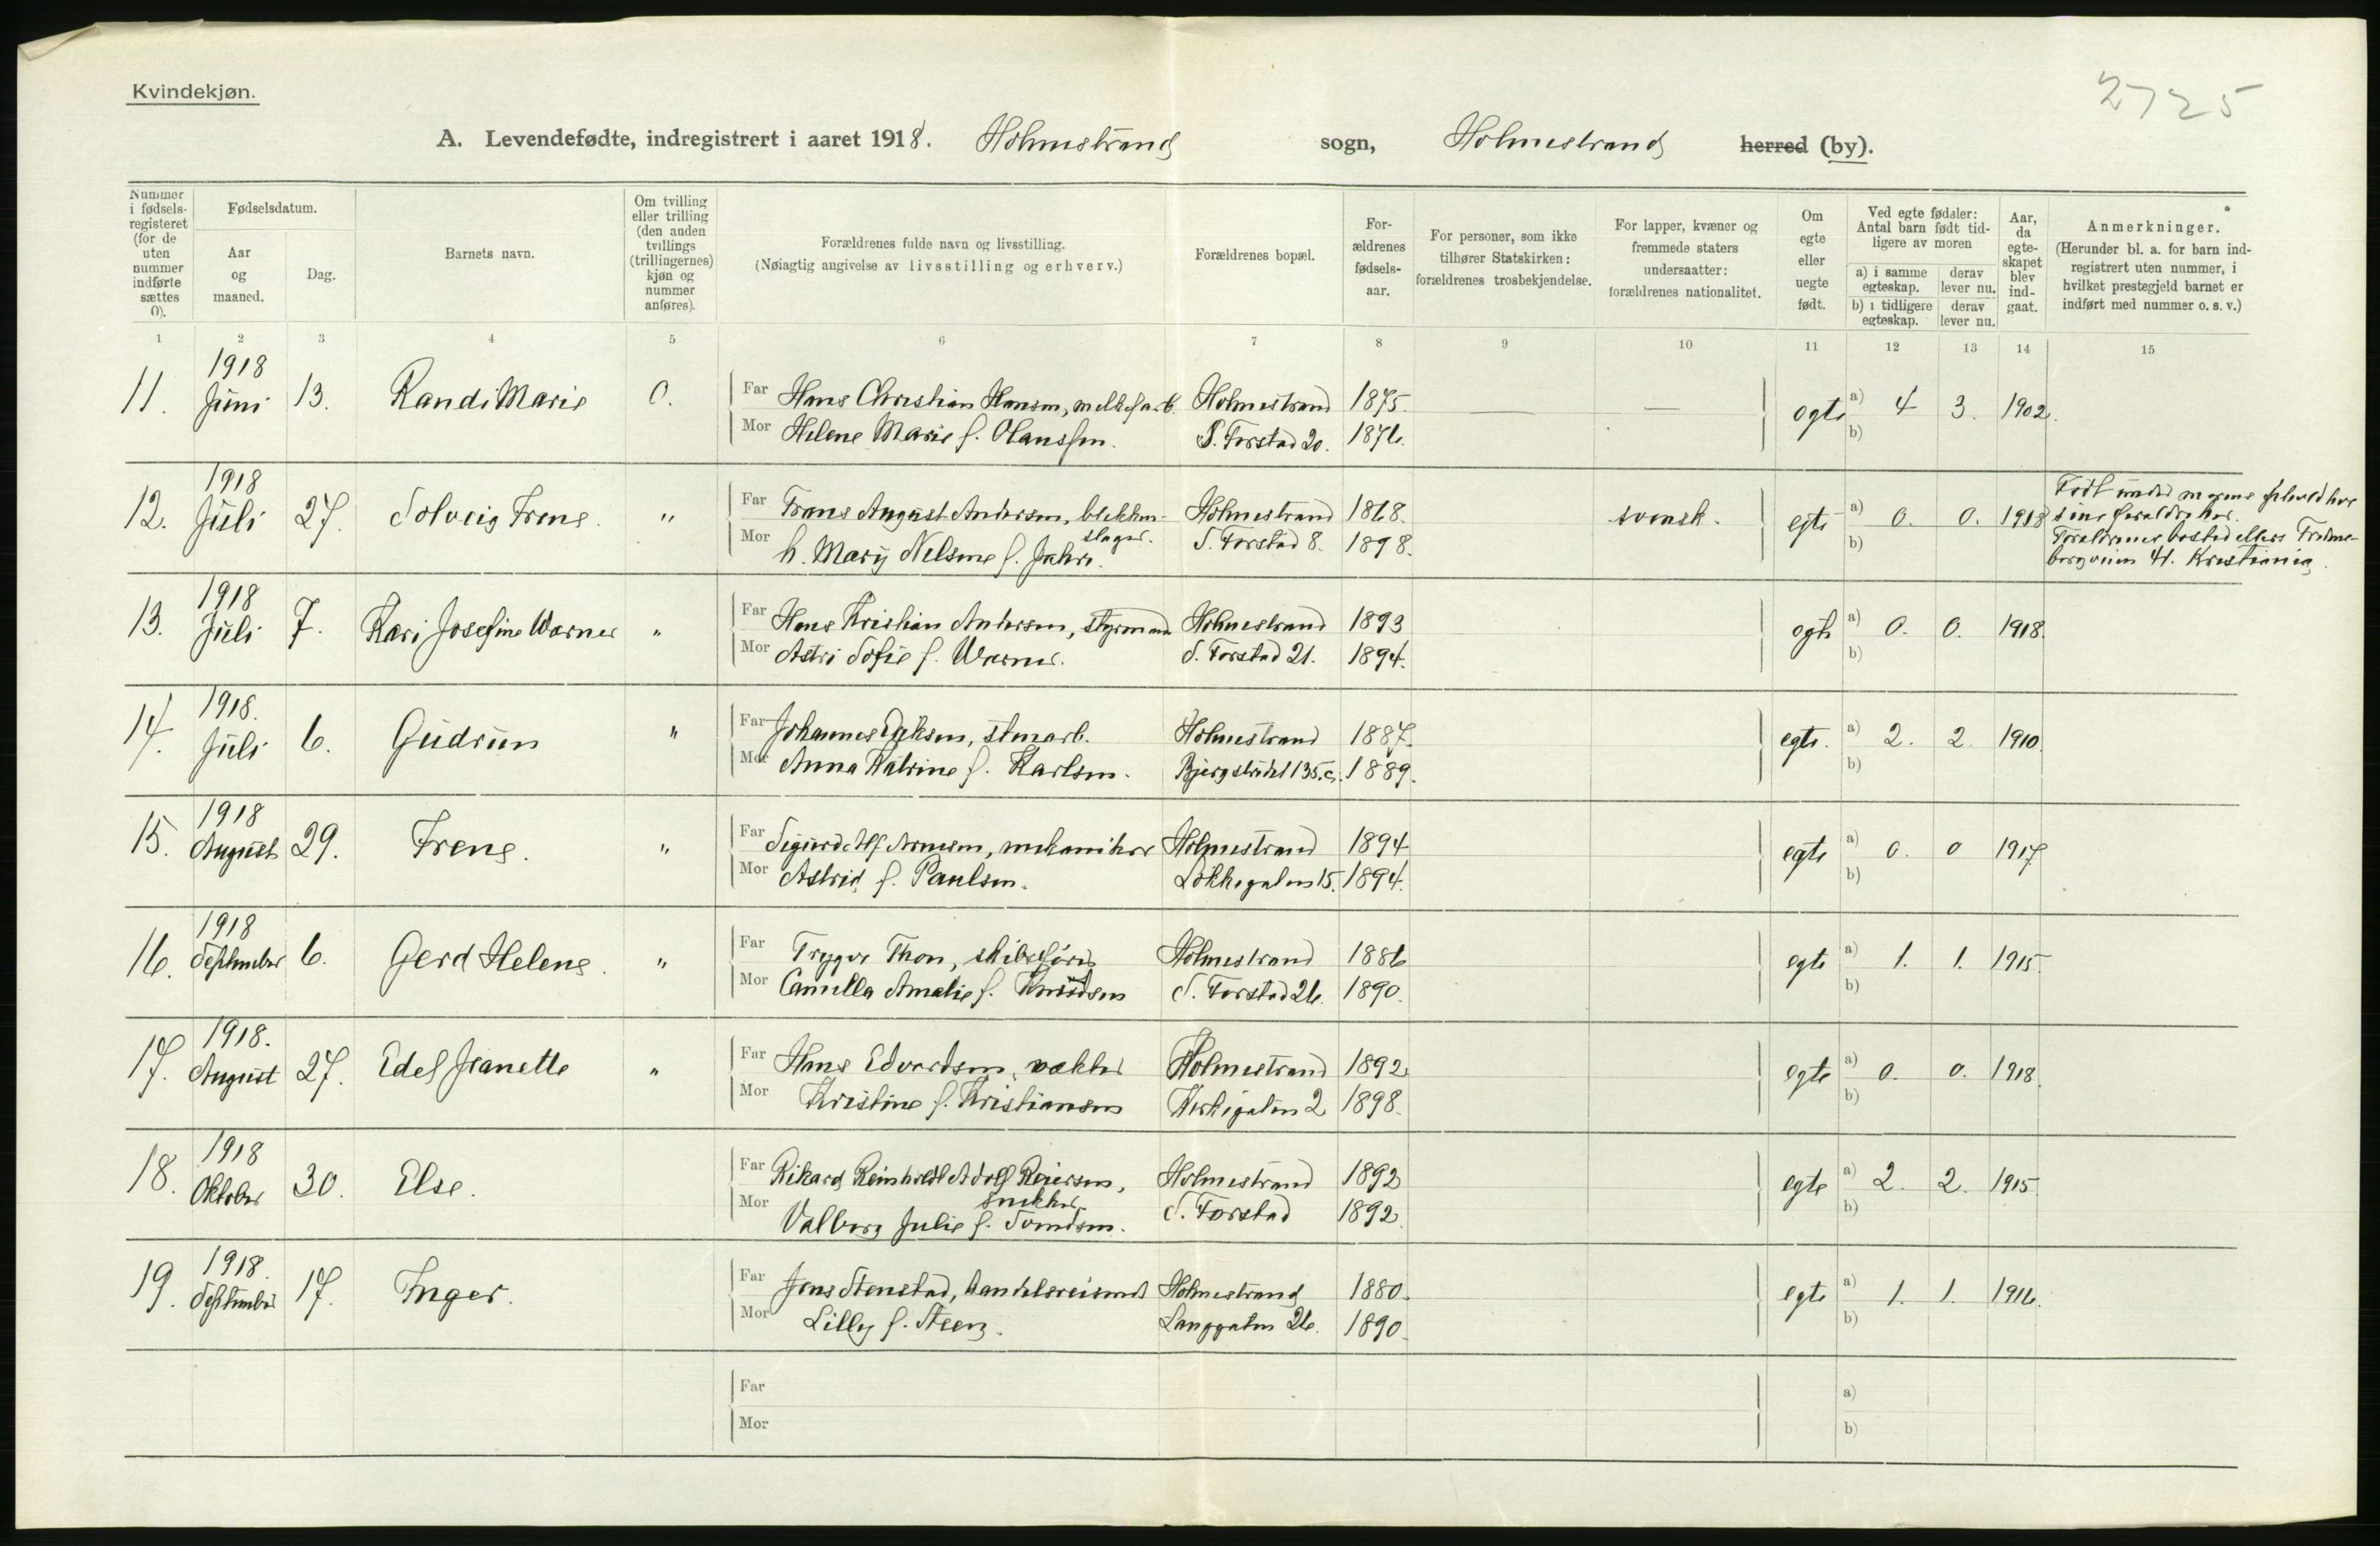 Kvindekjøn.
2725
A. Levendefødte, indregistrert i aaret 1918. Holmestrand sogn, Holmestrand herred (by).
Nummer i fødsels-registeret (for de uten nummer indførte sættes 0).
Fødselsdatum.
Aar og maaned.
Dag.
Barnets navn.
Om tvilling eller trilling (den anden tvillings (trillingernes) kjøn og nummer anføres).
Forældrenes fulde navn og livsstilling.
(Nøiagtig angivelse av livsstilling og erhverv.)
Forældrenes bopæl.
For-ældrenes fødsels-aar.
For personer, som ikke tilhører Statskirken: forældrenes trosbekjendelse.
For lapper, kvæner og fremmede staters undersaatter: forældrenes nationalitet.
Om egte eller uegte født.
Ved egte fødsler: Antal barn født tid-ligere av moren
a) i samme egteskap.
derav lever nu.
b) i tidligere egteskap.
derav lever nu.
Aar, da egte-skapet blev ind-gaat.
Anmerkninger.
(Herunder bl. a. for barn ind-registrert uten nummer, i hvilket prestegjeld barnet er indført med nummer o. s. v.)
1 2 3 4 5 6 7 8 9 10 11 12 13 14 15
1918
11. Juni 13. Randi Marie 0. Far Hans Christian Hansen, Holmestrand 1875. — — egte a) 4 3. 1902.
Mor Helene Marie f. Hanssen. S. Forstad 20. 1876. b)
1918
12. Juli 27. Solveig Irene. " Far Frans August Andersen, blikken- Holmestrand 1868. svensk. egte a) 0. 0. 1918
slager.
Mor h. Mary Nelsine f. S. Forstad 8. 1898. b)
Født under morens ophold hos
sine forældre her.
Forældrenes bosted ellers Frogner-
borgveien 41. Kristiania.
1918
13. Juli 7. Kari Josefine Warner " Far Hans Kristian Andersen, styrmand Holmestrand 1893 egte a) 0. 0. 1918.
Mor Astri Sofie f. Warner. S. Forstad 21. 1894. b)
1918.
14. Juli 6. Gudrun " Far Johannes stenarb. Holmestrand 1887. egte. a) 2. 2. 1910.
Mor Anna Katrine f. Karlsen. 135.c. 1889. b)
1918
15. August 29. Irene. " Far Sigurd Alf Arnesen, mekaniker Holmestrand 1894 egte a) 0. 0 1917
Mor Astrid f. Paulsen. Løkkegaten 15. 1894. b)
1918
16. September 6. Gerd Helene. " Far Trygve Thon, skibsfører Holmestrand 1886 egte a) 1. 1. 1915.
Mor Camilla Amalie f. Knudsen S. Forstad 26. 1890. b)
1918.
17. August 27. Edel Jeanette " Far Hans Edvardsen, vækter Holmestrand 1892 egte a) 0. 0. 1918.
Mor Kristine f. Kristiansen Kirkegaten 2 1898. b)
1918
18. Oktober 30. Else. Far Rikard Reinholdt Adolf Reiersen, Holmestrand 1892 egte a) 2. 2. 1915.
snekker
Mor Valborg Julie f. Svendsen. S. Forstad 1892. b)
1918.
19. September 17. Inger. Far Jens Stenstad, handelsreisende Holmestrand 1880. egte a) 1. 1. 1916.
Mor Lilly f. Steen. Langgaten 26. 1890. b)
Far a)
Mor b)